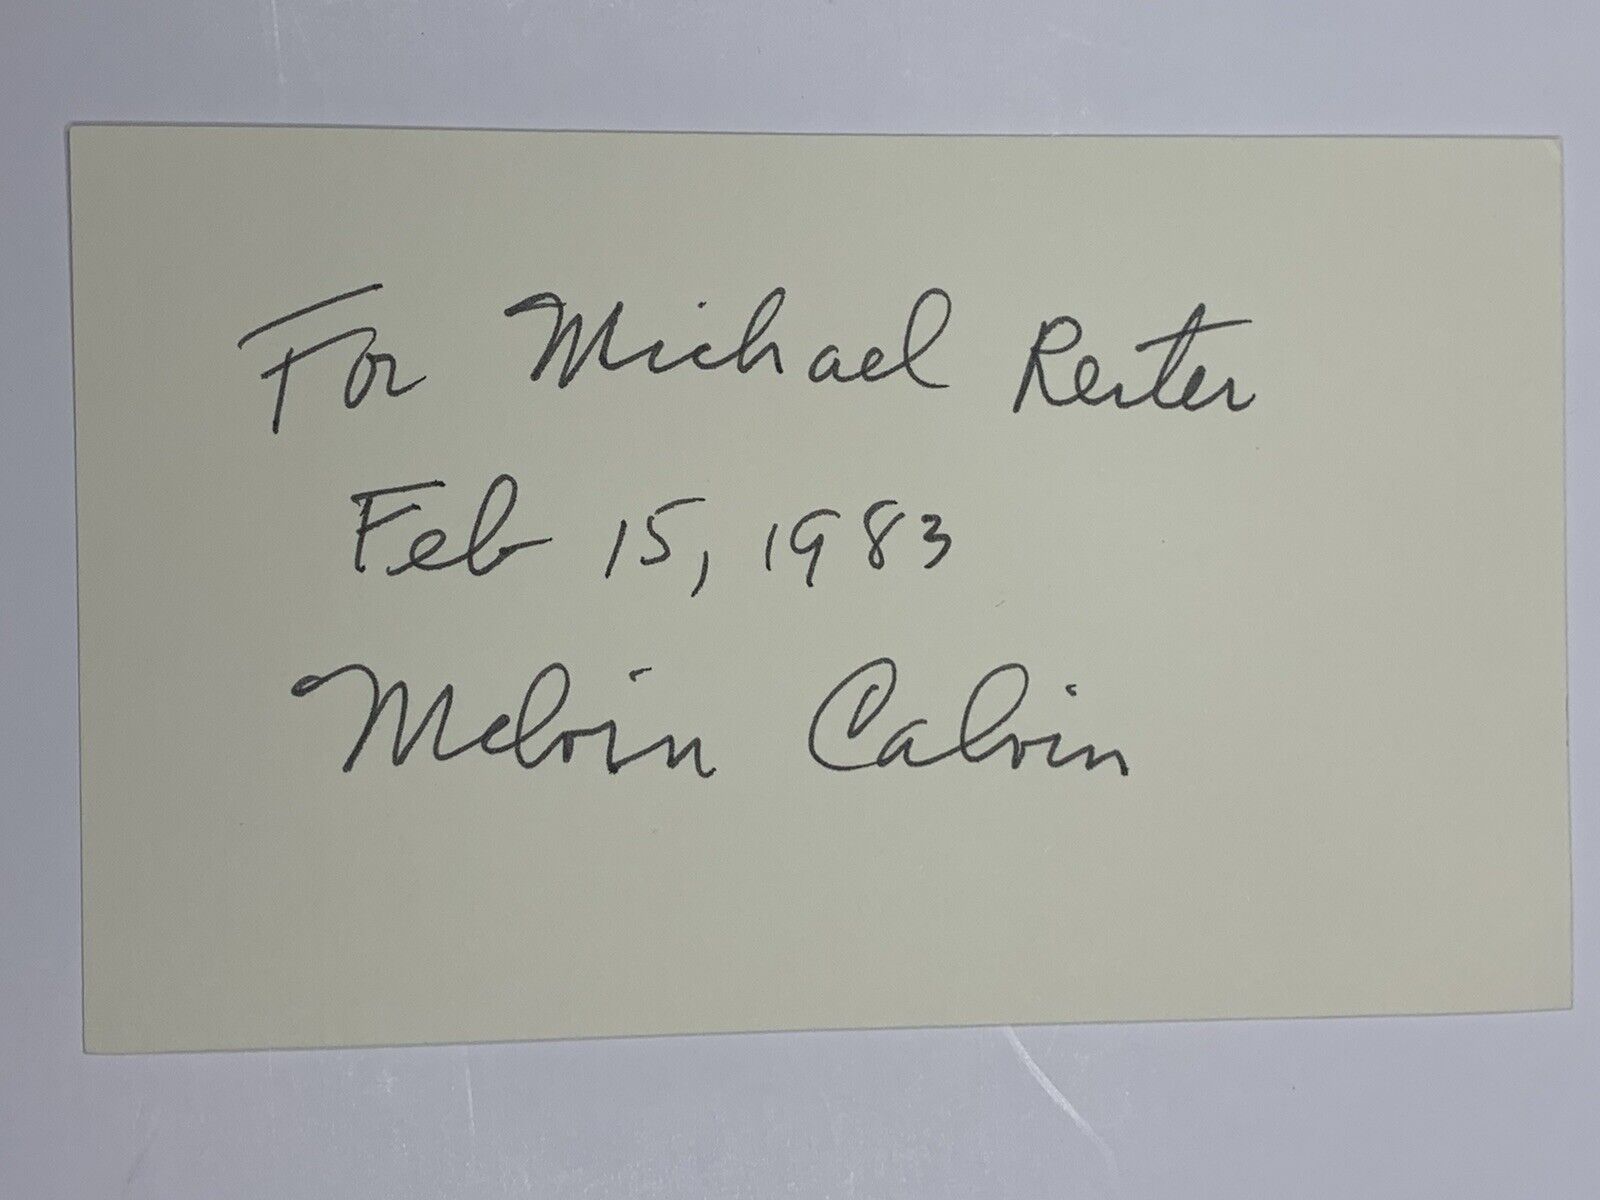 For Michael Reiter
Feb 15, 1983
Melvin Calvin